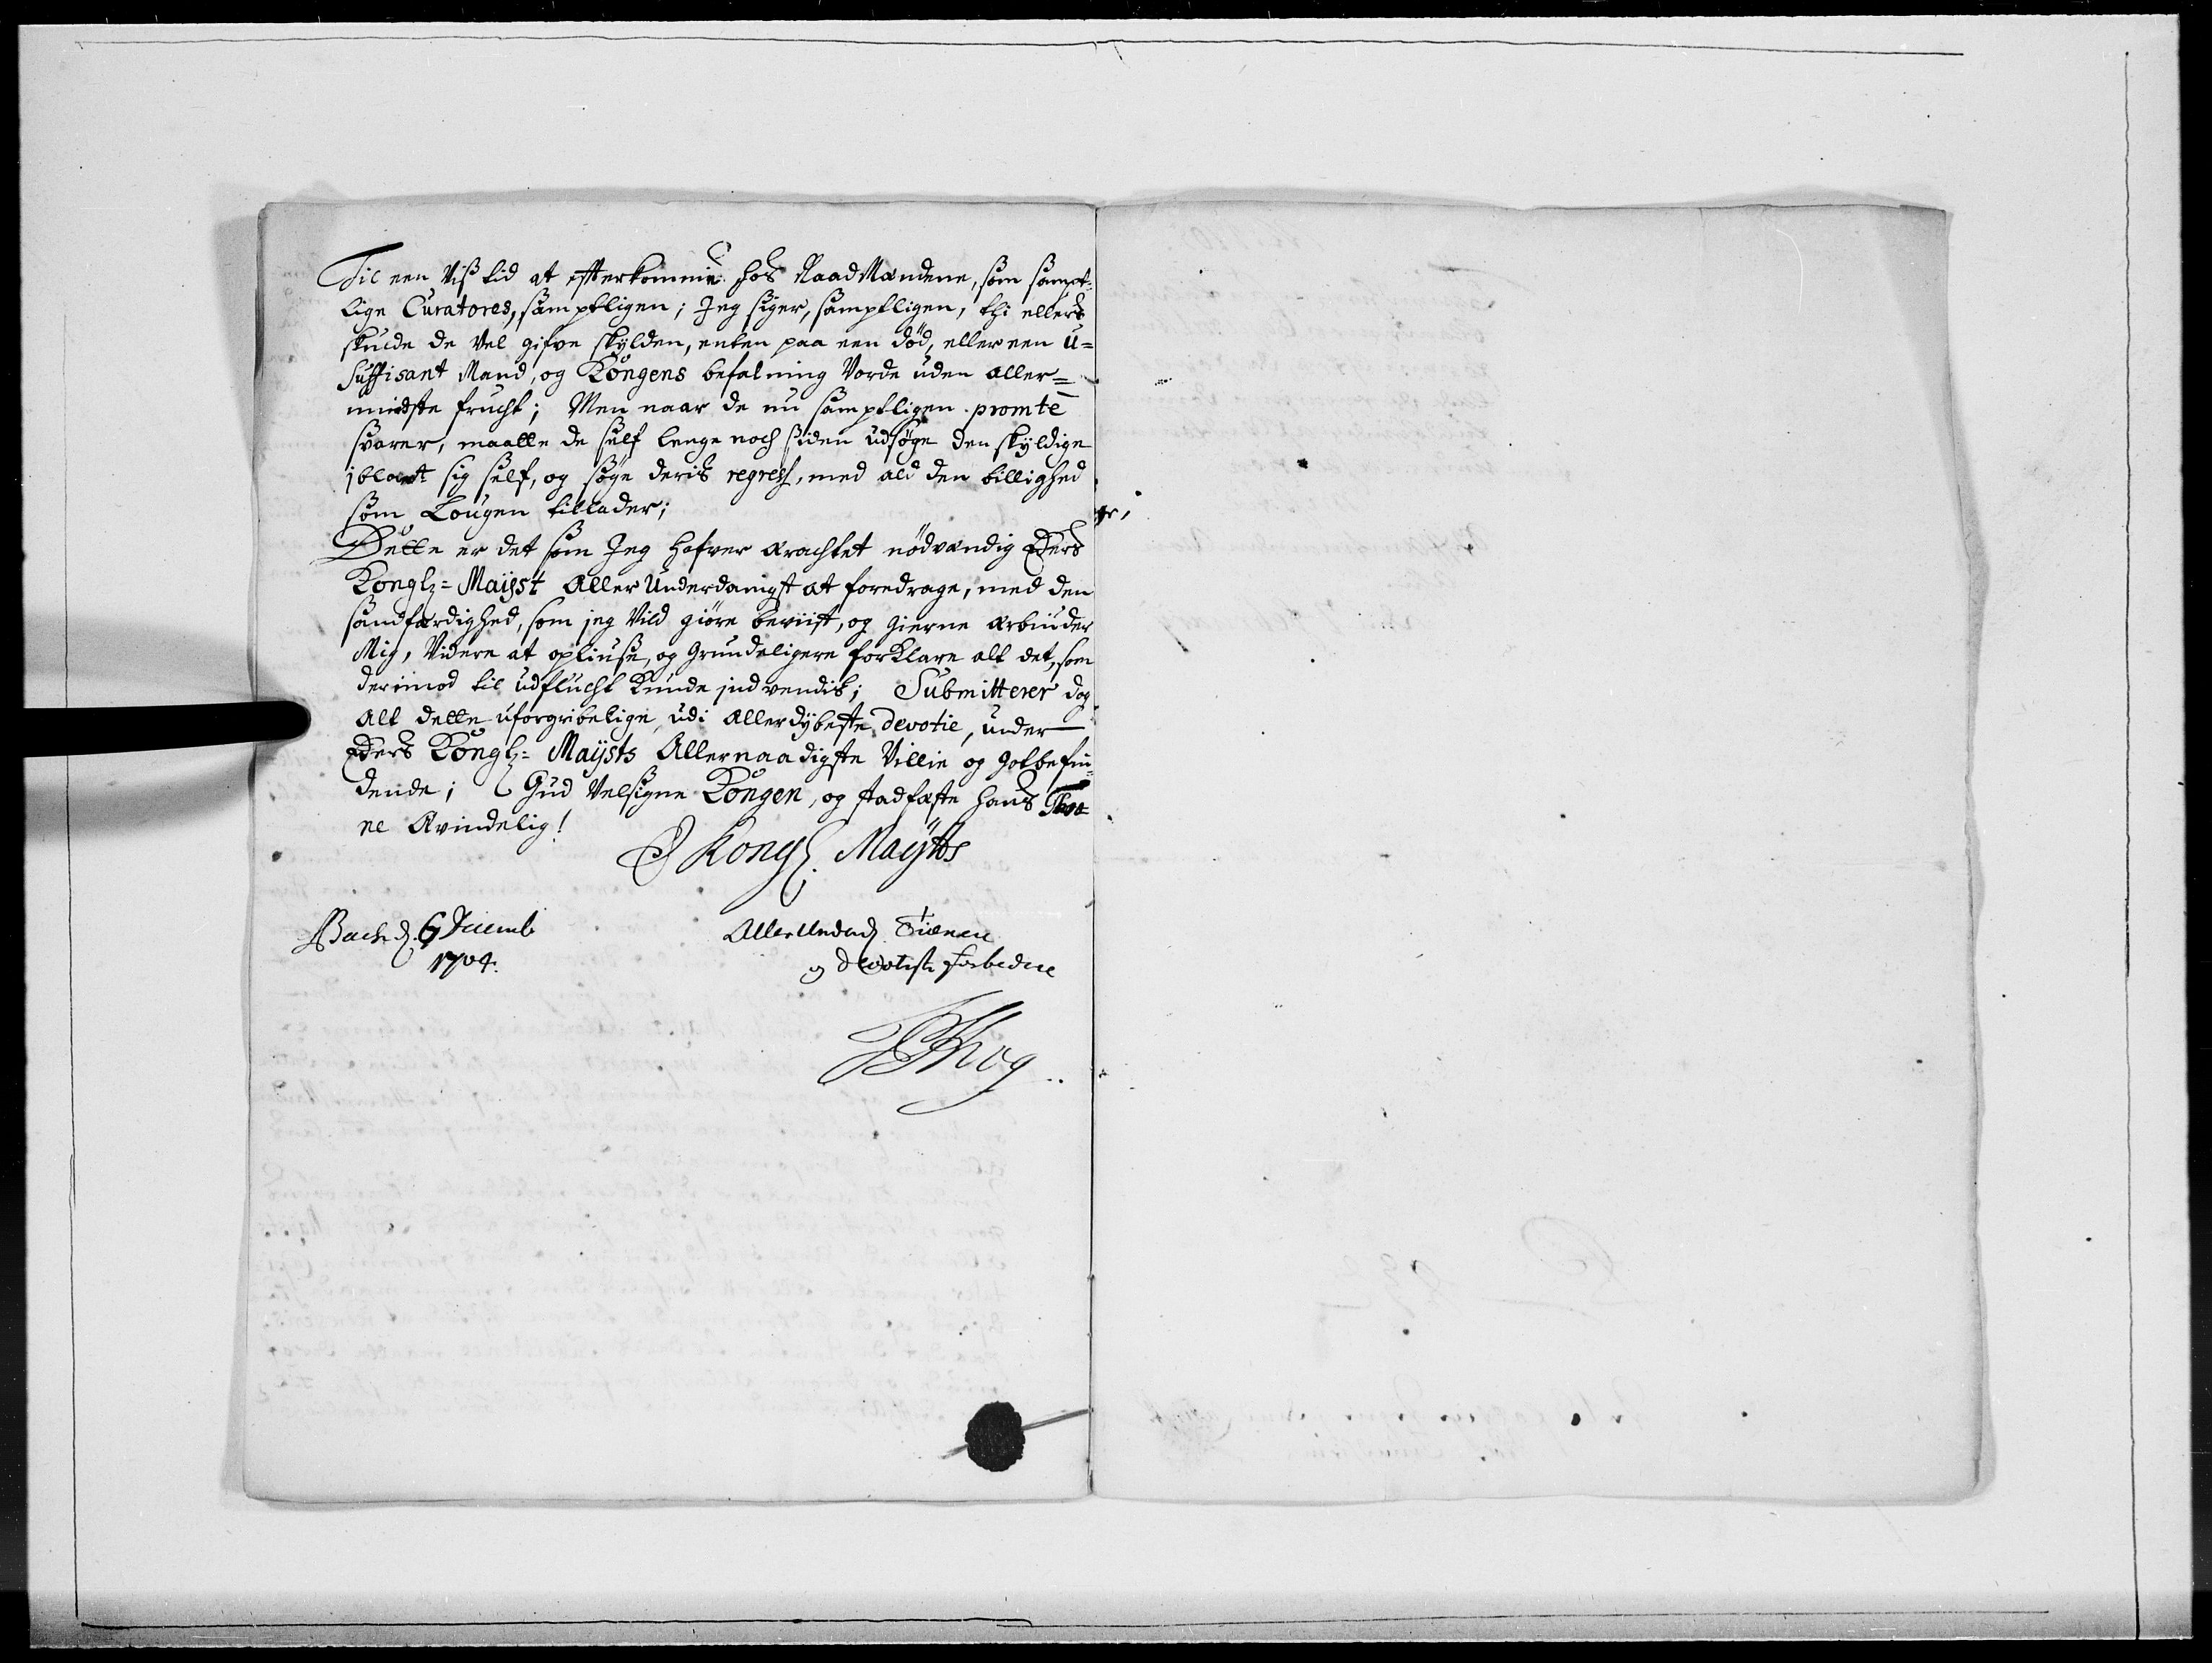 Til een Viß tid at efterkomme hos RaadMændene, som sampt¬
lige Curatores, samptligen; Jeg siger, samptligen, thi ellers
skulde de vel gifve skylden, enten paa een død, eller een u=
suffisant Mand, og Kongens befalning Vorde uden aller=
mindste frucht; Men naar de nu samptligen promte
svarer, maatte de self lenge noch siden udsøge den skyldige
iblant sig self, og søge deris regress, med ald den billighed
som Lougen tillader;
Dette er det som Jeg hafver arachtet nödvændig Eders
Kongl= Mayst AllerUnderdanigst at foredrage, med den
sandfærdighed, som jeg Vild giöre beviist, og gierne ærbiuder
Mig, Videre at opliuse, og grundeligere forklare alt det, som
derimod til udflucht kunde indvendis; Submitterer dog
Alt dette uforgribelige, udi allerdybeste devotie, under
Eders Kongl= Maysts Allernaadigste Villie og gotbefin¬
dende; Gud Velsigne Kongen, og stadfæste hans Thro
ne Ævindelig!
E Kongl. Maytts
Bach d. 6 Decemb
1704.
AllerUnderd. Tienere
og devotiste forbedere